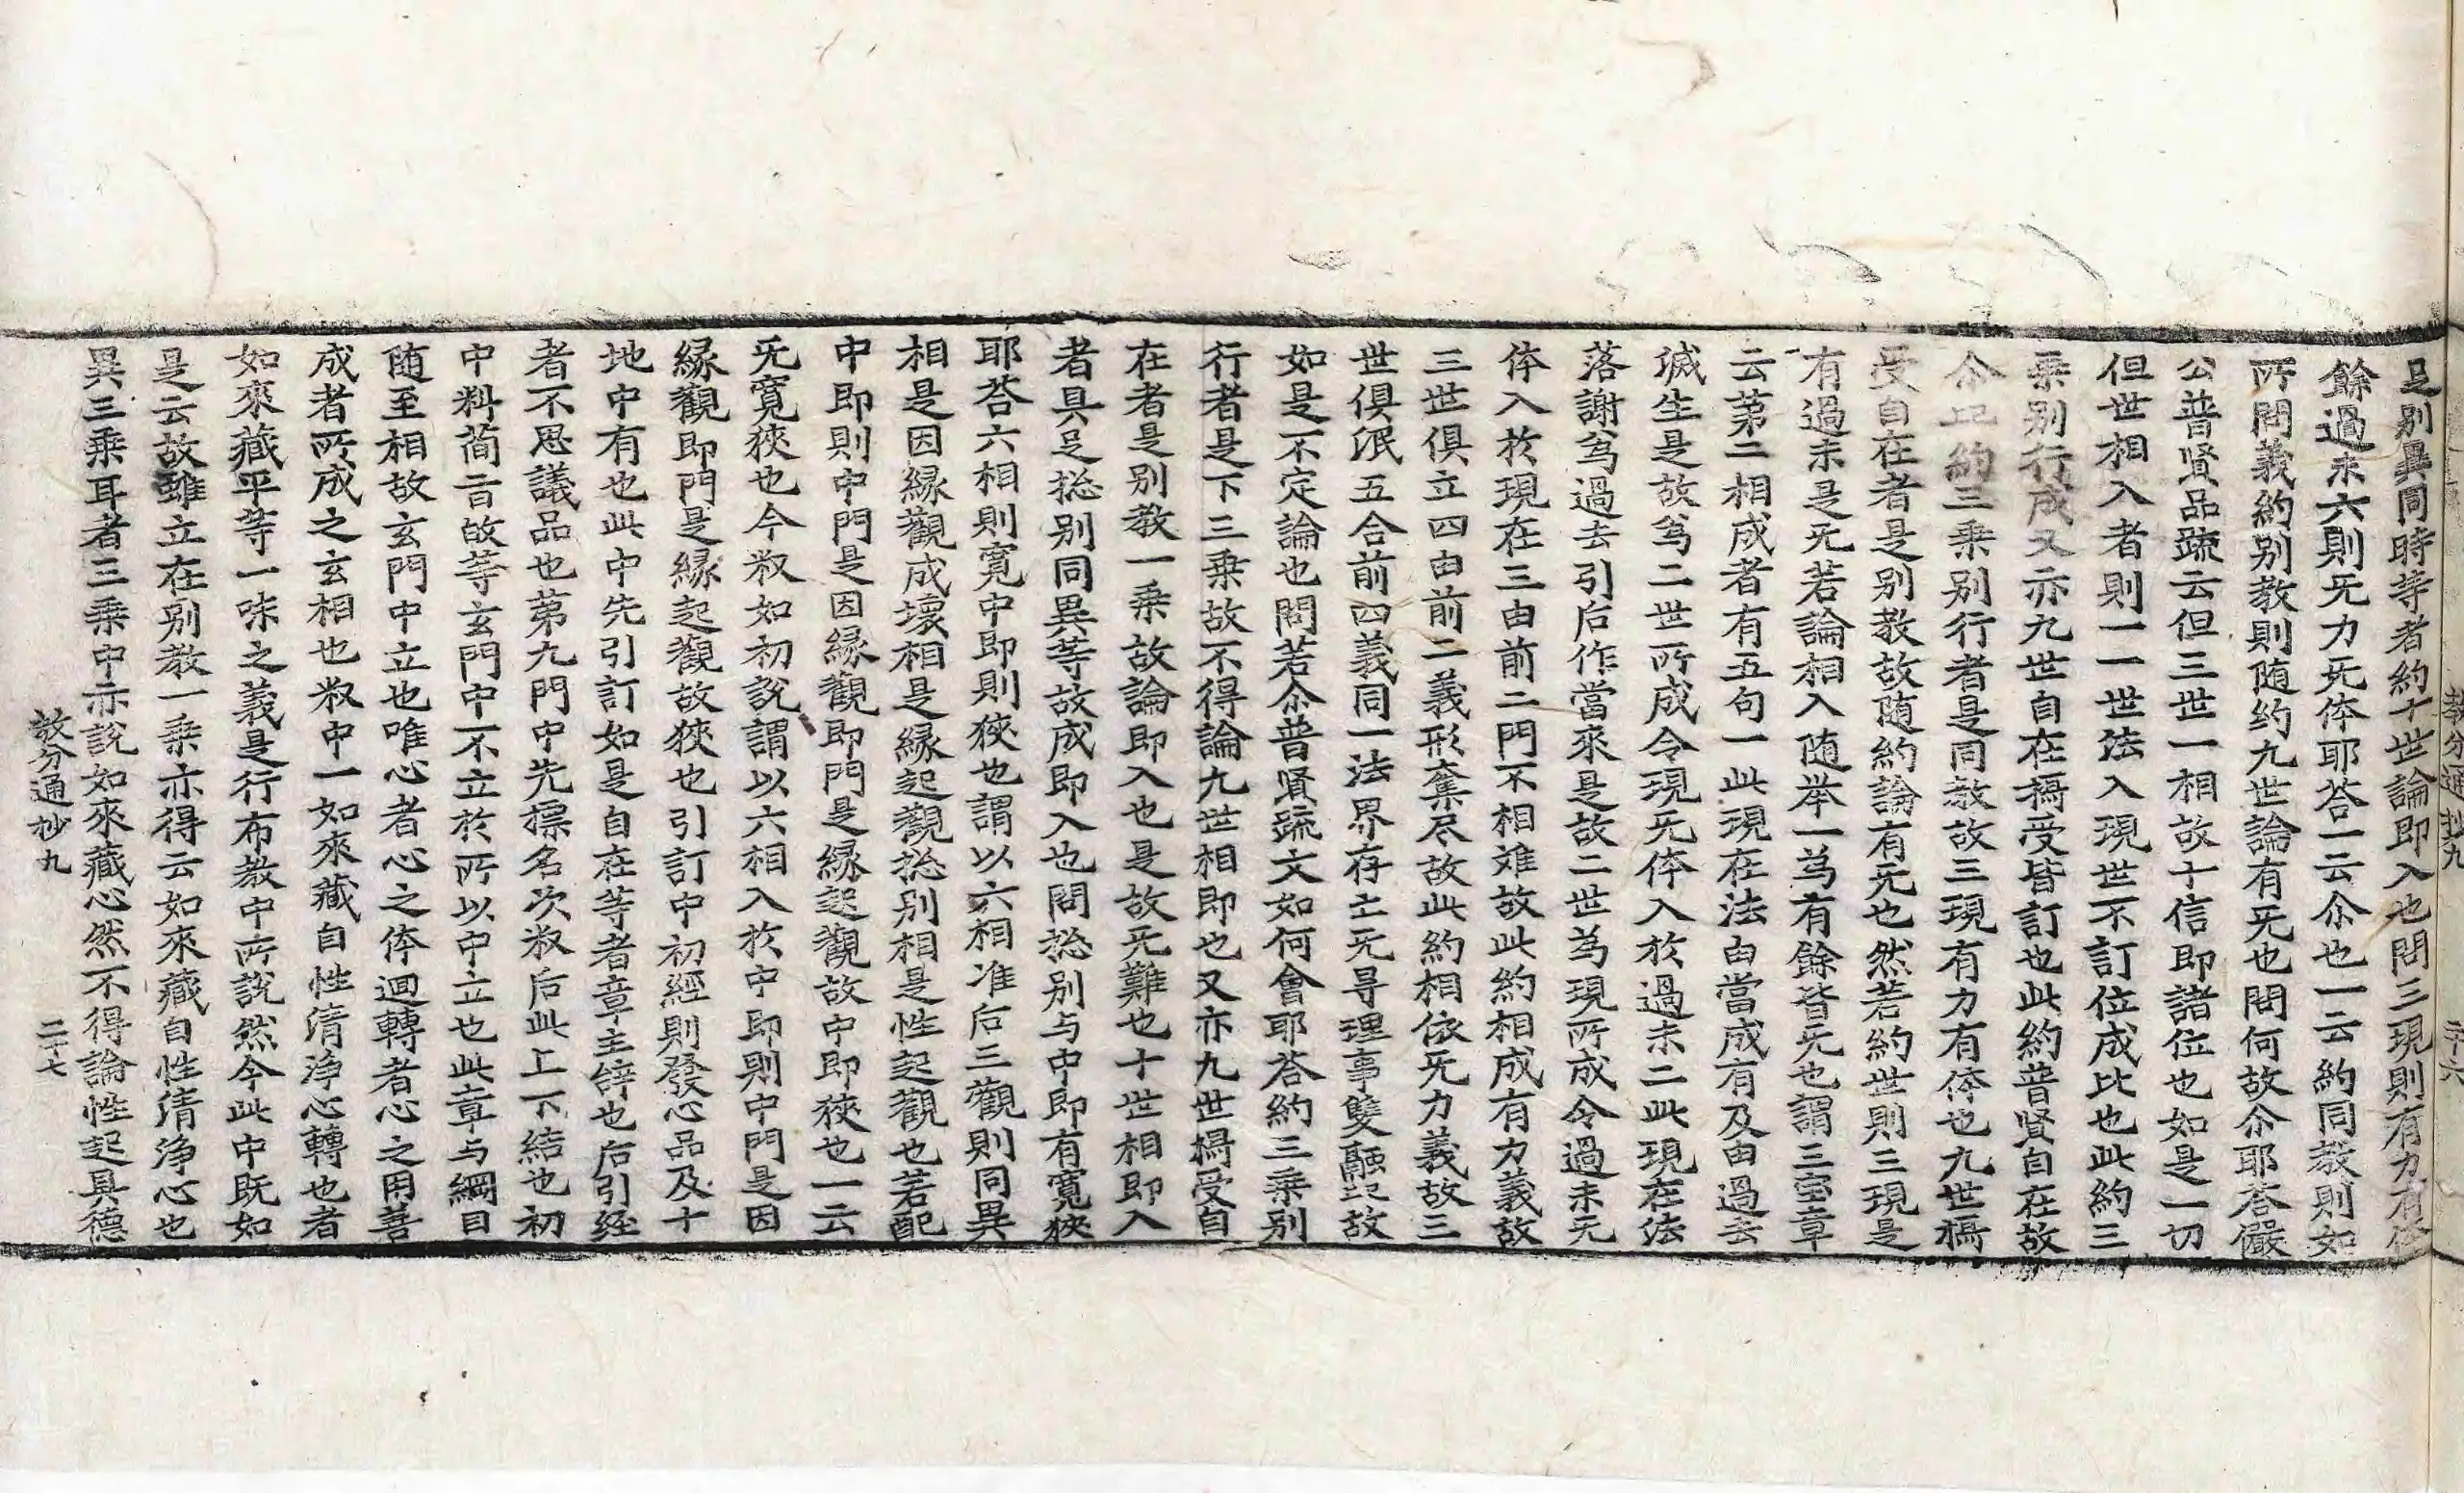 足别異同時等者約十世論即入也問三現則有力有体
餘過未六則旡力旡体耶荅一云尒也一云約同教則如
所問義約别教則随約九世論有旡也問何故尒耶荅儼
公普賢品䟽云但三世一相故十信即諸位也如是一切
但世相入者則一一世法入現世不訂位成比也此約三
乗别行成又亦九世自在㩦受皆訂也此約普賢自在故
尒上約三乗别行者是同教故三現有力有体也九世㩦
受自在者是别教故随約論有旡也然若約世則三現是
有過未是旡若論相入随举一為有餘皆旡也謂三宝章
云第二相成者有五句一此現在法由當成有及由過去
㓕生是故為二世所成令現旡体入於過未二此現在法
落謝為過去引后作當來是故二世為現所成令過未旡
体入於現在三由前二門不相难故此約相成有力義故
三世俱立四由前二義形奪尽故此約相依旡力義故三
世俱泯五合前四義同一法界存亡旡寻理事雙融記故
如是不定論也問若尒普賢䟽文如何會耶荅約三乗别
行者是下三乗故不得論九世相即也又亦九世㩦受自
在者是别教一乗故論即入也是故旡難也十世相即入
者具足捴别同異等故成即入也問捴别与中即有寛狹
耶荅六相則寛中即則狹也謂以六相准后三觀則同異
相是因縁觀成壞相是縁起觀捴别相是性起觀也若配
中即則中門是因縁觀即門是縁起觀故中即狹也一云
旡寛狹也今叙如初說謂以六相入於中即則中門是因
縁觀即門是縁起觀故狹也引訂中初經則發心品及十
地中有也此中先引訂如是自在等者章主辞也后引経
者不思議品也第九門中先摽名次叙后此上下結也初
中料簡言故等玄門中不立於所以中立也此章与綱目
随至相故玄門中立也唯心者心之体迴轉者心之用善
成者所成之玄相也叙中一如來藏自性清浄心轉也者
如來藏平等一味之義是行布教中所說然今此中既如
是云故雖立在别教一乗亦得云如來藏自性清浄心也
異三乗耳者三乗中亦說如來藏心然不得論性起具德
教分通抄九 二十七